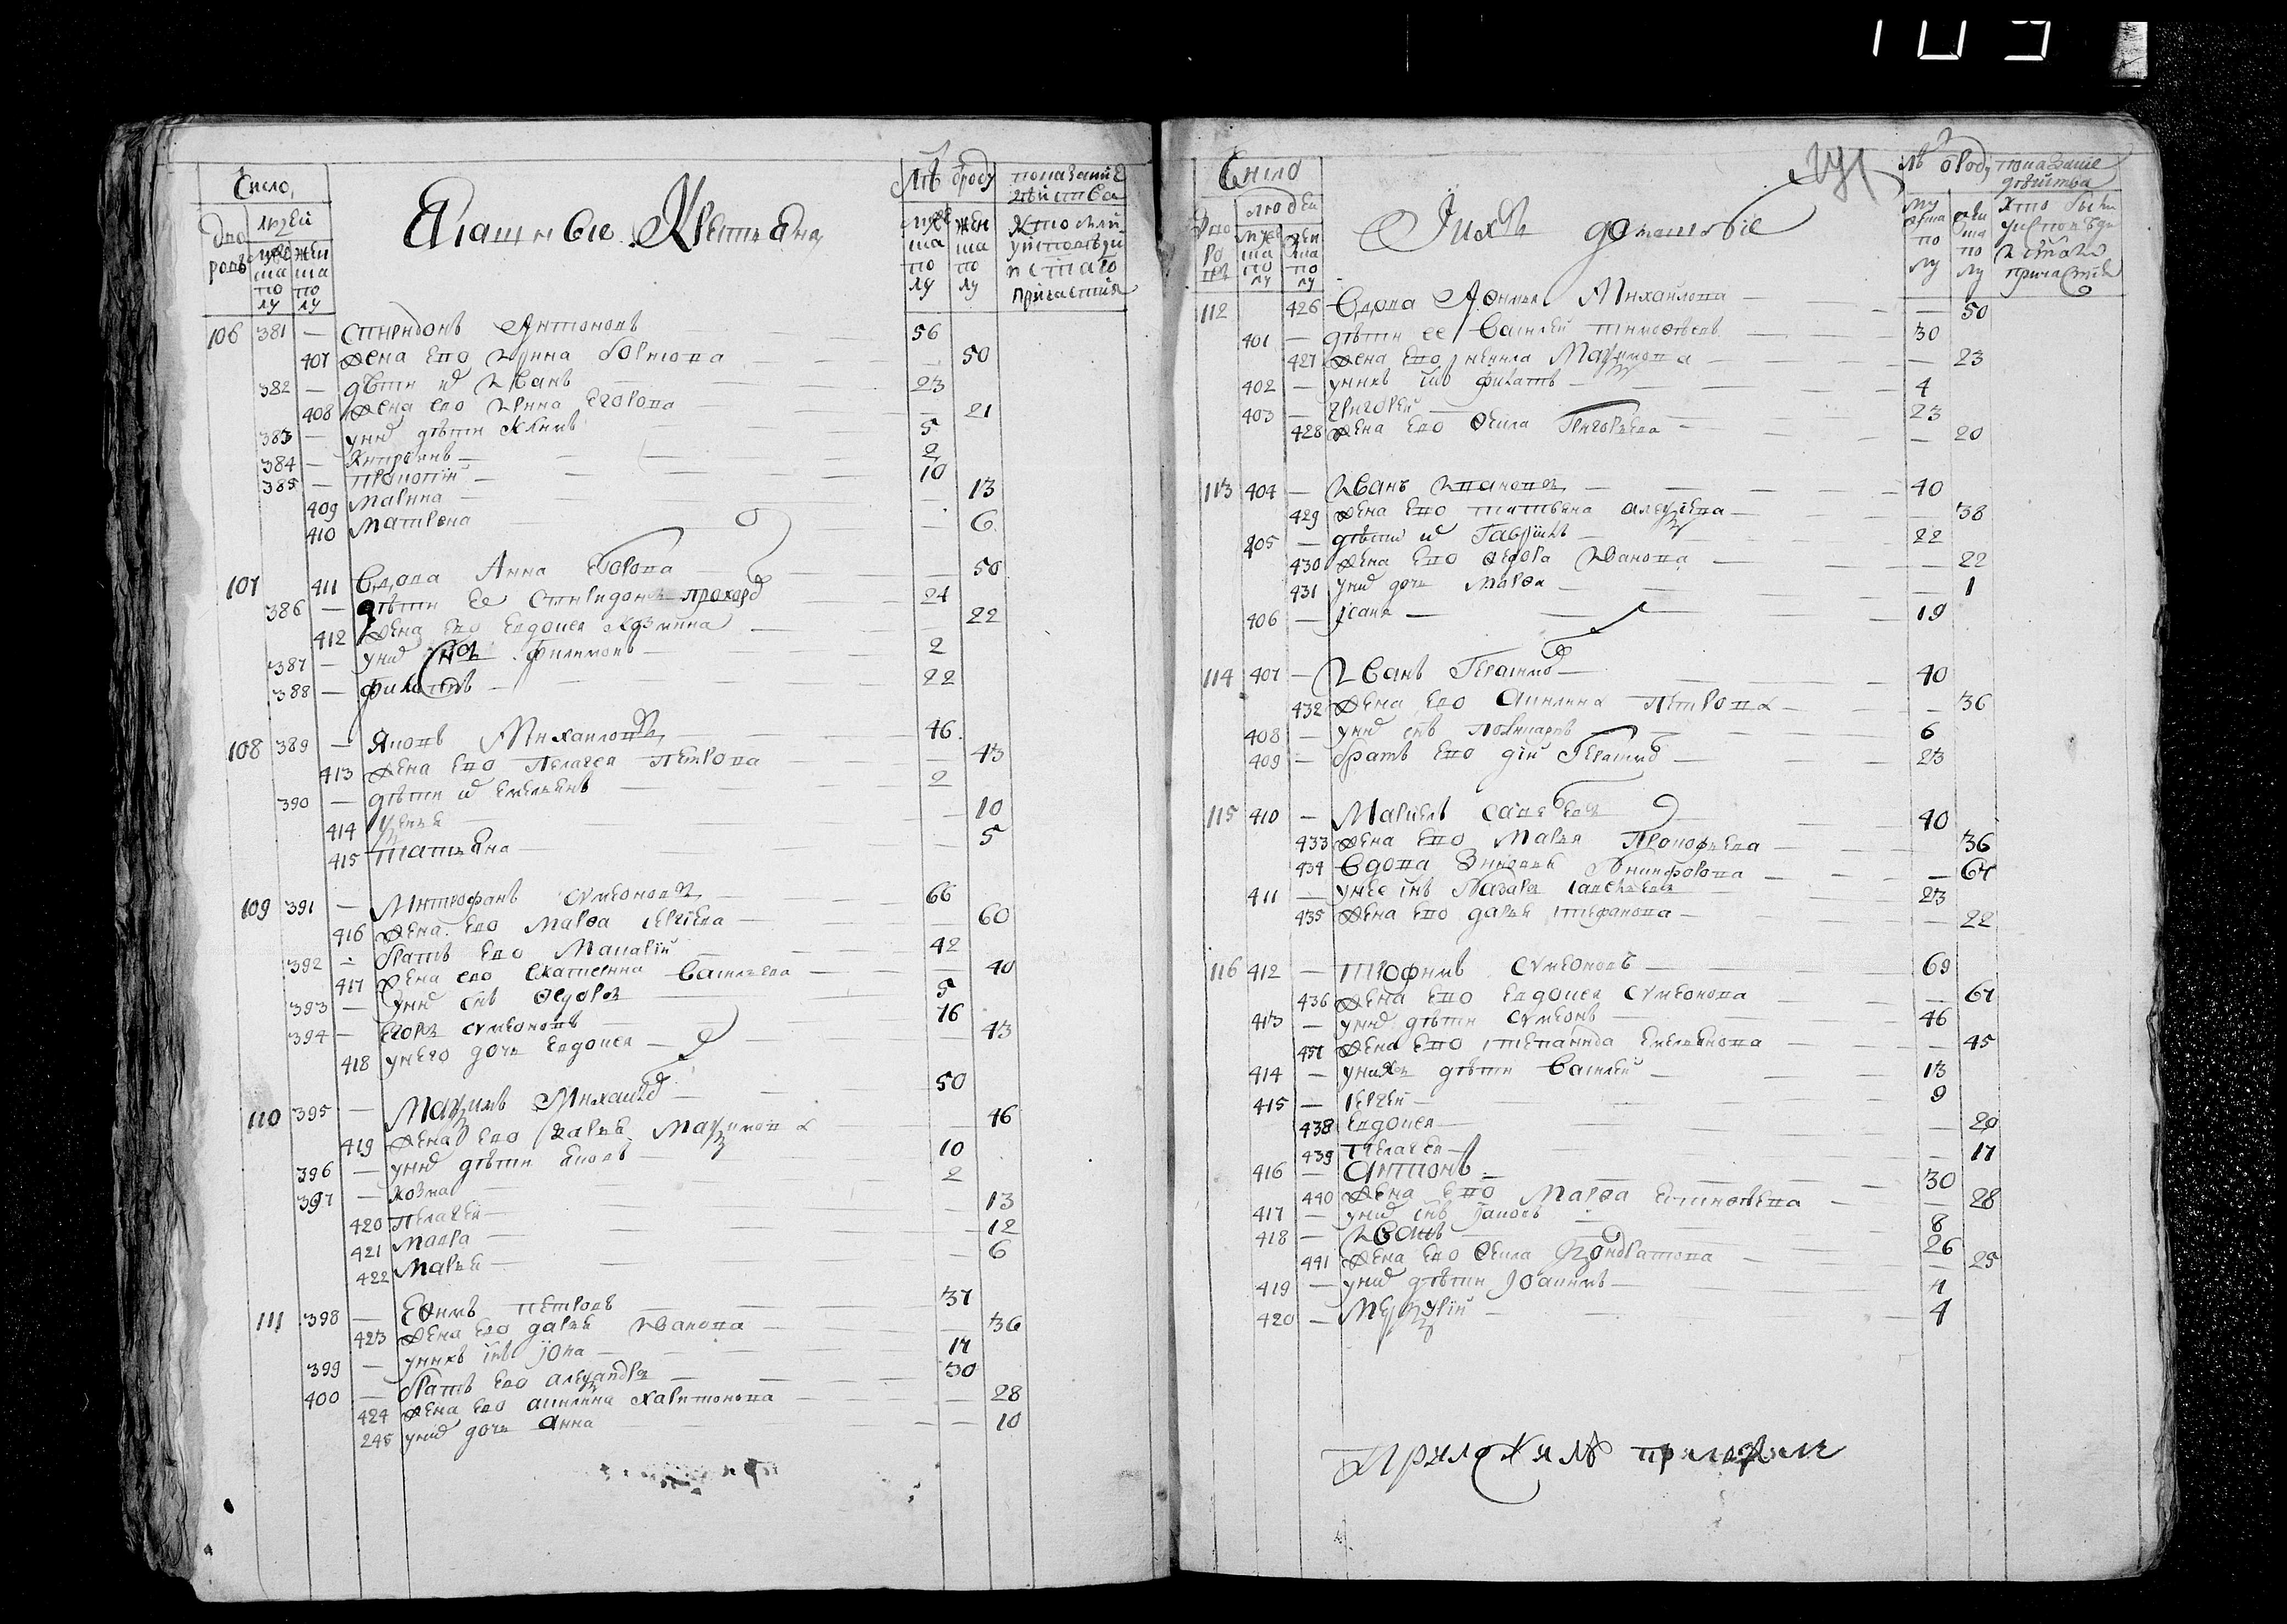 109
Число,
дворовъ
людей
муже ска по лу
жен ска по лу
Крестьяне
лѣтъ
ѿроду
муже ска по лу
жен ска по лу
показание действа
Хто были у исповѣди и с таго причастия
106 381 — Спиридонъ Антоновъ 56
407 Жена ево Ирина 50
382 — дѣти их Иванъ 23
408 Жена ево Ирина Егорова — 21
383 — у них дѣти Климъ 5
384 — Киприянъ — 2
385 — Прокопий — 10
409 Марина — 13
410 Матрена — 6
107 411 Вдова Анна Егорова — 50
386 — дѣти ее Спиридонъ Прохоръ 24
412 Жена ево Евдокея Козмина — 22
387 — у них снъ Филимонъ — 2
388 — Филатъ — 22
108 389 — Яковъ Михаиловъ — 46
413 Жена ево Пелагея Петрова — 43
390 — дѣти их Емельянъ — 2
414 — 10
415 Татьяна — 5
109 391 — Митрофанъ Сумеоновъ 66
416 Жена ево Марѳа Сергиева — 60
392 — братъ ево Макарий — 42
417 Жена ево Екатерина Васильева — 40
393 — у них снъ Ѳедоръ — 5
394 — Егоръ Сумеоновъ — 76
418 у него дочь Евдокея — 43
110 395 — Маѯимъ Михаилов — 50
419 Жена ево Дарья Маѯимова 46
396 — у них дѣти Яковъ — 10
397 — Козма — 2
420 Пелагея — 13
421 Мавра — 12
422 Марья — 6
111 398 — Еѳимъ Петровъ — 37
423 Жена ево Дарья Иванова — 36
399 — у них снъ Иона — 17
400 — братъ ево Алеѯандръ — 30
424 Жена ево Акилина Харитонова — 28
245 у них дочь Анна — 10
Число
дворовъ
людей
муже ска по лу
жен ска по лу
И их домашние
лѣ ѿ роду
му жска по лу
жен ска по лу
показание действа
Хто были у исповѣди и с таго причастия
112 426 Вдова Михаилова — 50
401 — дѣти ее Василей Тимоѳеевъ — 30
427 Жена ево Ненила Маѯимова — 23
402 — у них снъ Филатъ — 4
403 — Григорей — 23
428 Жена ево Ѳекла Григорьева — 20
113 404 — Иванъ — 40
429 Жена ево Татьяна Алеѯиева — 38
405 — дѣти их Гаврила — 22
430 Жена ево Ѳедора Иванова — 22
431 у них дочь Марѳа — 1
406 — Исакъ — 19
114 407 — Иванъ Герасимов — 40
432 Жена ево Акилина Петрова — 36
408 — у них снъ — 6
409 — братъ ево Герасимов — 23
115 410 — Маркелъ Савельевъ — 40
433 Жена ево Марья Прокофьева — 36
434 Вдова Никифорова — 67
411 — у нее снъ Назаръ Савельевъ 23
435 Жена ево Дарья Стефанова — 22
116 412 — Трофимъ Сумеоновъ — 69
436 Жена ево Евдокея Сумеонова — 67
413 — у них дѣти Сумеонъ — 46
437 Жена ево Степанида Емельянова — 45
414 — у них дѣти Василий — 13
415 — Сергей — 9
438 Евдокея — 20
439 Пелагея — 17
416 — Антонъ — 30
440 Жена ево Марѳа — 28
417 — у них снъ Иаковъ — 8
418 — Иванъ — 26
441 Жена ево Ѳекла Кондратова — 25
419 — у них дѣти Иоакимъ — 4
420 — Меркурий — 4
приложилъ